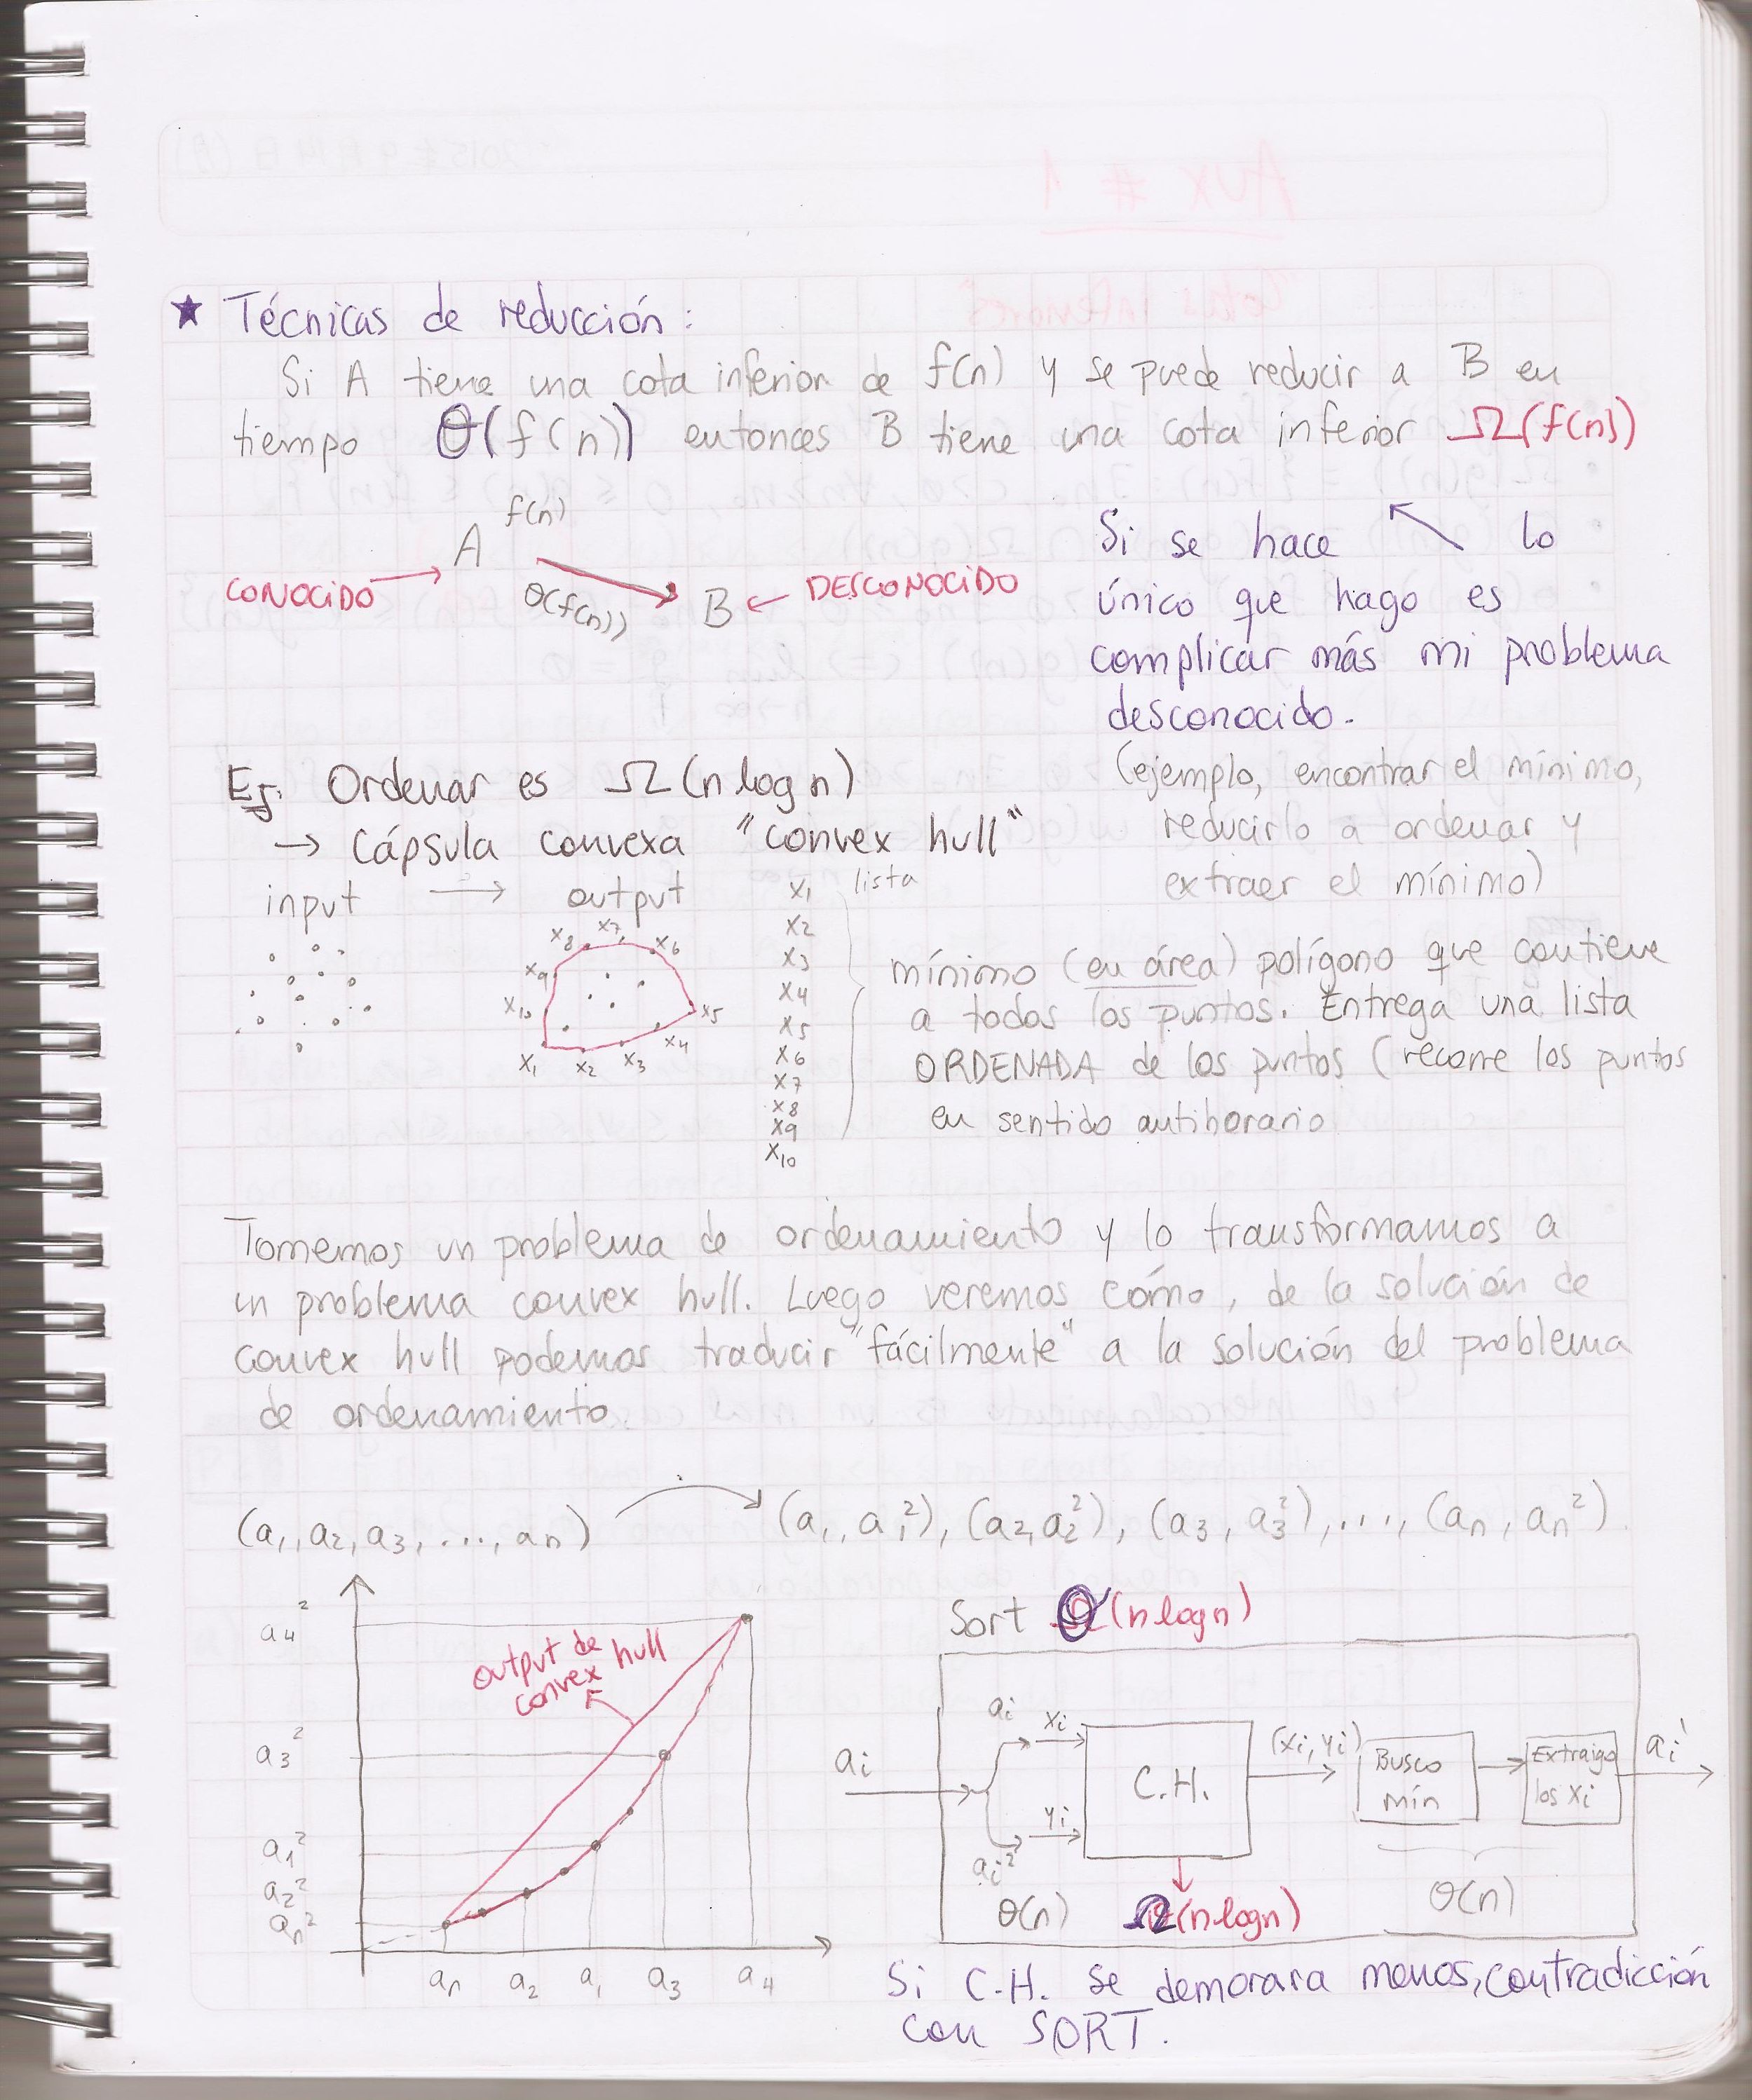 ★ Técnicas de reducción:
Si A tiene una cota inferior de f(n) y se puede reducir a B en
tiempo Θ(f(n)) entonces B tiene una cota inferior Ω(f(n))
f(n)
A
CONOCIDO →
Θ(f(n))
B ← DESCONOCIDO
Si se hace ↖ lo
único que hago es
complicar más mi problema
desconocido.
(ejemplo, encontrar el mínimo,
reducirlo a ordenar y
extraer el mínimo)
Ej: Ordenar es Ω(n log n)
→ Cápsula convexa "convex hull"
input → output
x8 x7 x6
x9
x10 x5
x1 x2 x3 x4
x1 lista
x2
x3
x4
x5
x6
x7
x8
x9
x10
mínimo (en área) polígono que contiene
a todos los puntos. Entrega una lista
ORDENADA de los puntos (recorre los puntos
en sentido antihorario
Tomemos un problema de ordenamiento y lo transformamos a
un problema convex hull. Luego veremos cómo, de la solución de
convex hull podemos traducir "fácilmente" a la solución del problema
de ordenamiento.
(a1, a2, a3, ..., an) → (a1, a1²), (a2, a2²), (a3, a3²), ..., (an, an²).
a4²
a3²
a1²
a2²
an²
output de
convex hull
an a2 a1 a3 a4
Sort (n log n)
ai
ai xi
yi
ai²
C.H.
(xi, yi)
Busco
mín
Extraigo
los xi
ai'
Θ(n)
Ω(n log n)
Θ(n)
Si C.H. se demorara menos, contradicción
con SORT.